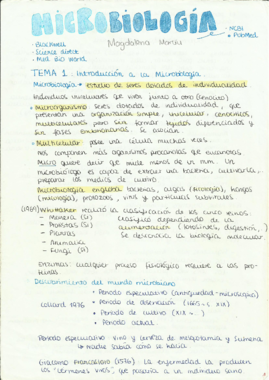 MICROBIOLOGÍA
- NCBI
- PubMed
- Blackwell
- Science direct
- Med. Bio World
Magdalena Martín
TEMA 1. Introducción a la Microbiología
Microbiología → estudio de seres dotados de individualidad
Individuos unicelulares que viven junto a otro
• Microorganismo seres dotados de individualidad, que
presentan una organización simple, unicelular, cenocítica,
pluricelulares pero sin formar tejidos diferenciados y
sin fases embrionarias. Se asocian
• Multicelular posee una célula muchas veces.
Nos componen más organismos procariotas que eucariotas
Micro quiere decir que mide menos de un mm. Un
microbiólogo es capaz de extraer una bacteria, cultivarla,
preparar los medios de cultivo
Microbiología engloba bacterias, algas (ficología), hongos
(micología), protozoos, virus y partículas subvirales
(1969) Whittaker realizó la clasificación de los cinco reinos.
- Monera (Si)
- Protistas (Si)
- Plantas
- Animalia
- Fungi (Si)
Clasifica dependiendo de la
alimentación (fotosíntesis, digestión,..)
Se desconocía la biología molecular
Enzimas cualquier proceso fisiológico resuelve a los pro-
teínas
Descubrimiento del mundo microbiano
Collard 1976
• Periodo especulativo (antigüedad-microscopio)
• Periodo de observación (1665 - S XIX)
• Periodo de cultivo (XIX - )
• Periodo actual
Periodo especulativo vino y cerveza de Mesopotamia y Sumeria
↳ nadie sabía como se hacía
Girolamo Francastorio (1546) La enfermedad la producen
los "gérmenes vivos", que pasarían a un individuo sano